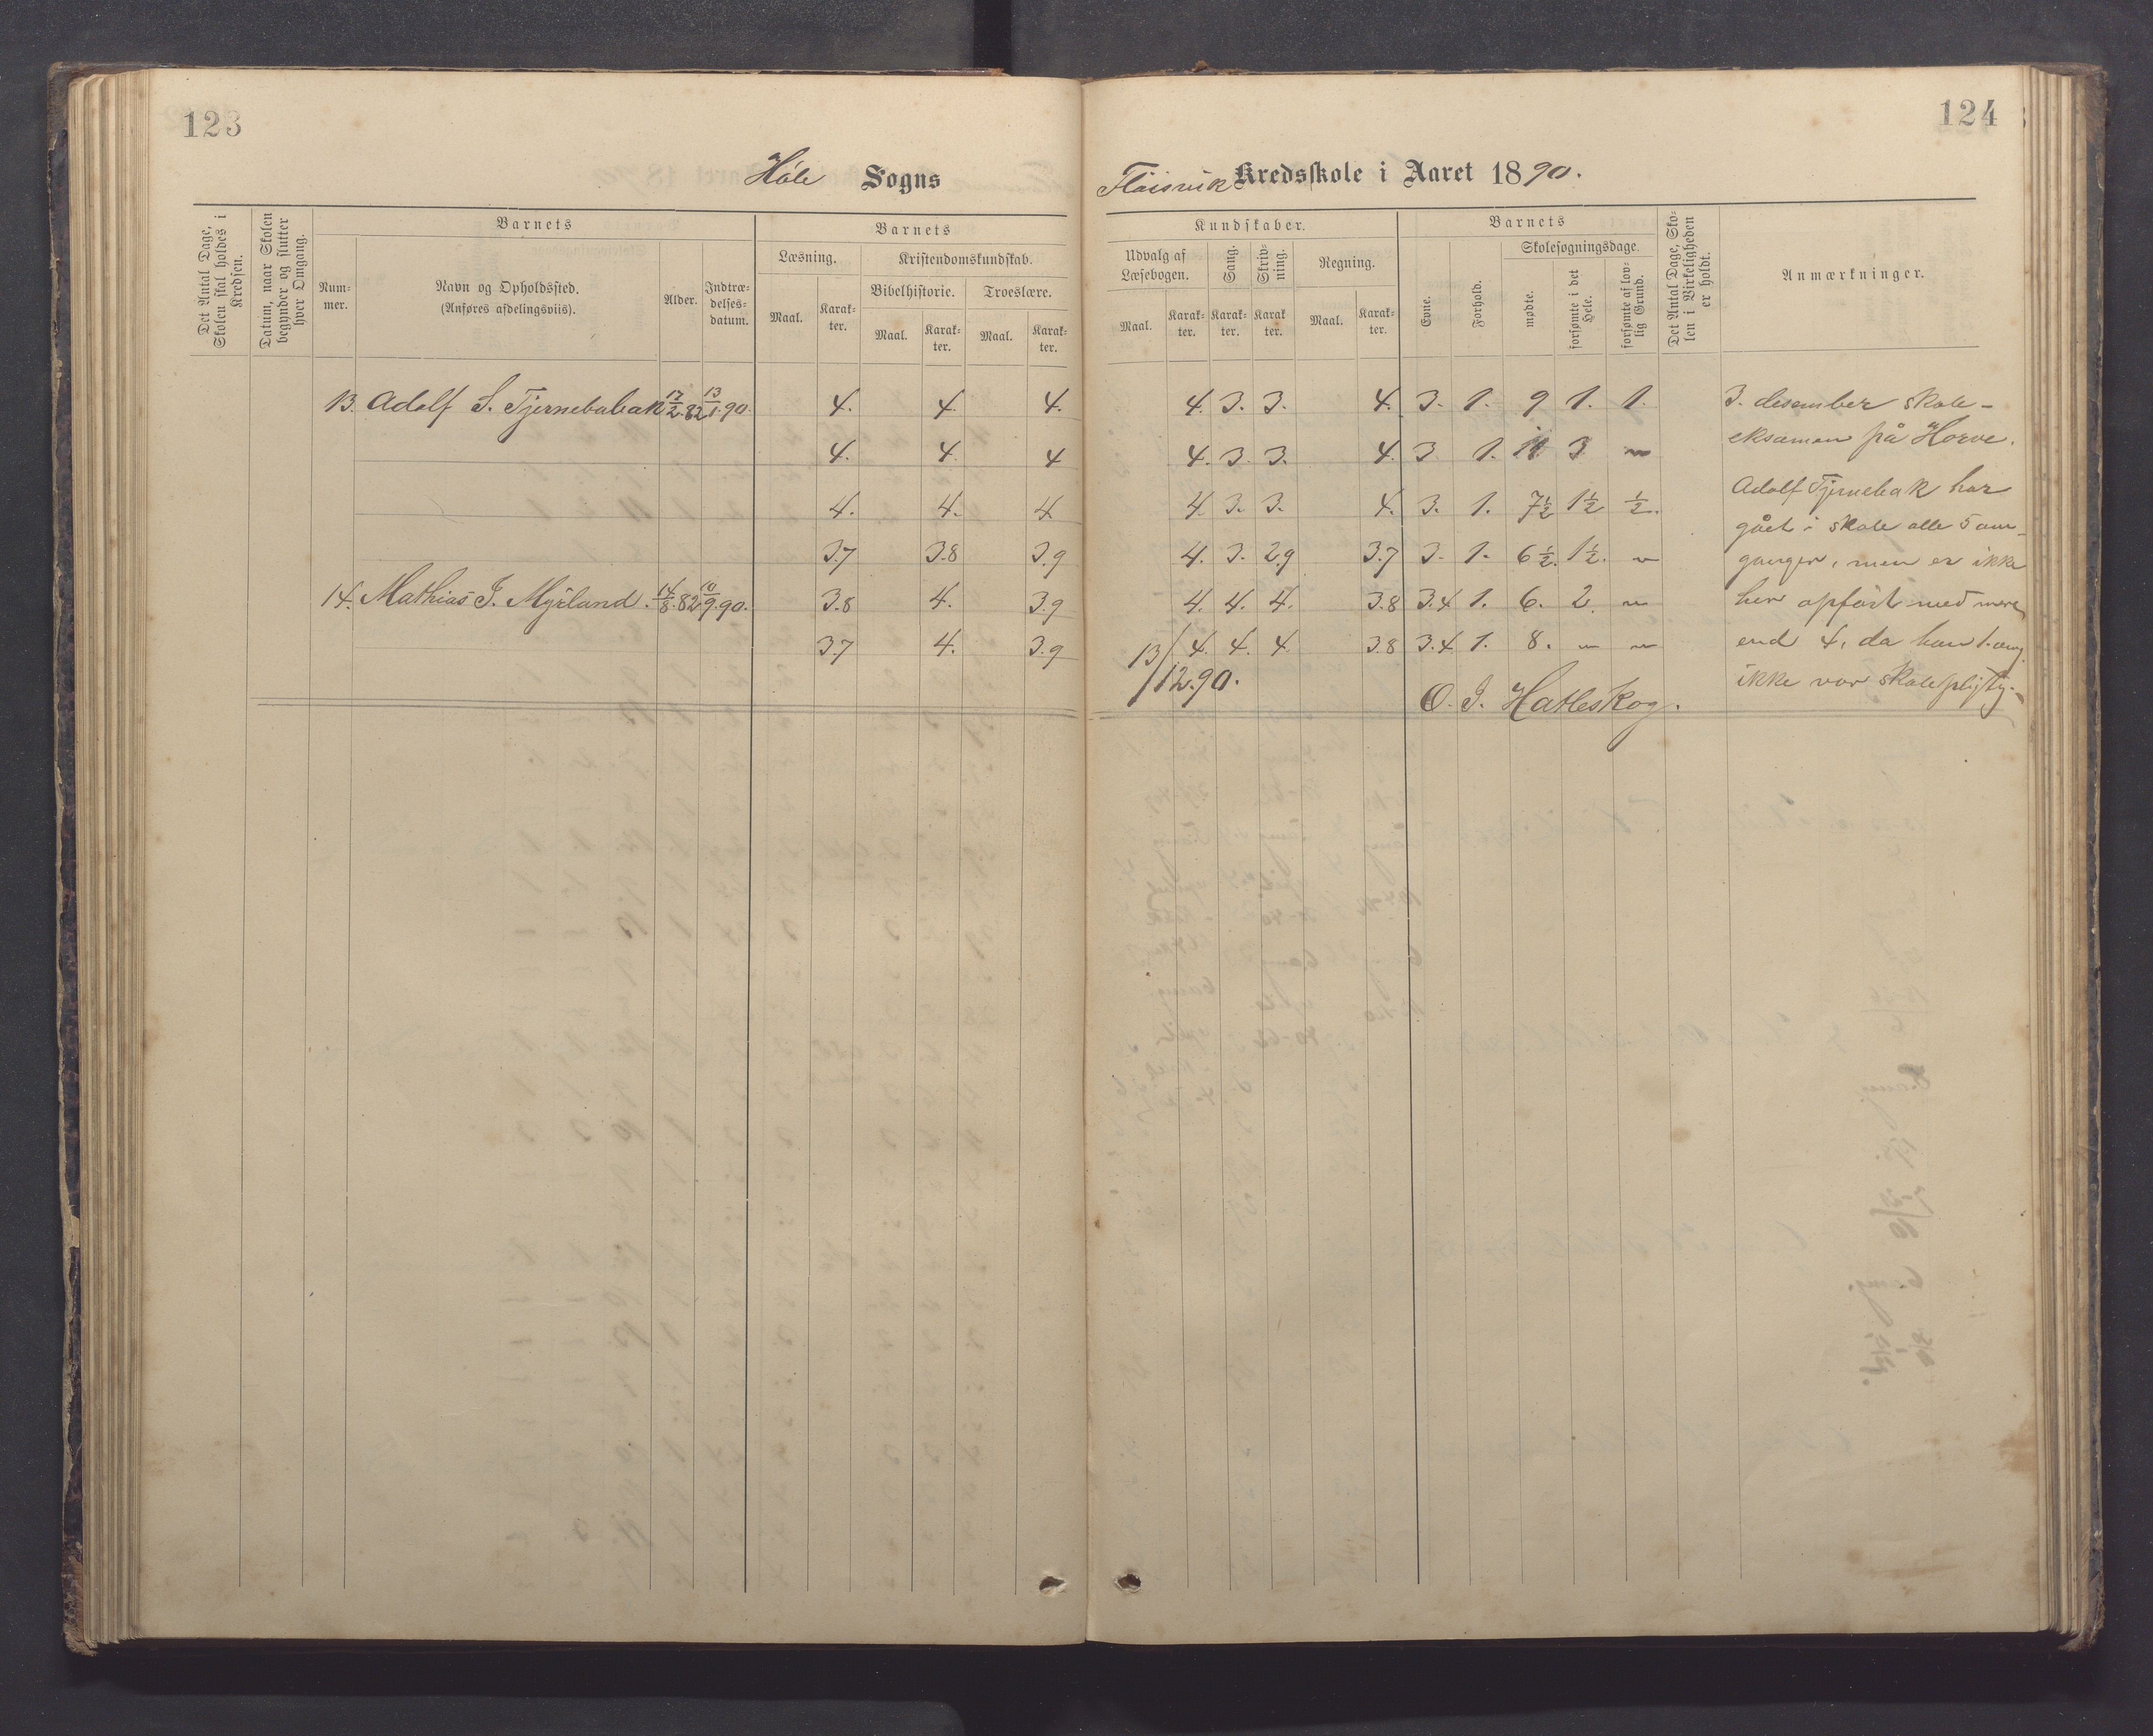 123
124
Høle Sogns
Fløisvik Kredsskole i Aaret 1890.
Det Antal Dage, Skolen skal holdes i Kredsen.
Datum, naar Skolen begynder og slutter hver Omgang.
Barnets
Num-
mer.
Navn og Opholdssted.
(Anføres afdelingsviis).
Alder.
Indtræ-
delses-
datum.
Barnets
Læsning.
Kristendomskundskab.
Bibelhistorie.
Troeslære.
Maal.
Karak-
ter.
Maal.
Karak-
ter.
Maal.
Karak-
ter.
Kundskaber.
Udvalg af
Læsebogen.
Sang.
Skriv-
ning.
Regning.
Maal.
Karak-
ter.
Karak-
ter.
Karak
ter.
Maal.
Karak-
ter.
Barnets
Evne.
Forhold.
Skolesøgningsdage.
mødte.
forsømte i det
Hele.
forsømte af lov-
lig Grund.
Det Antal Dage, Sko-
len i Virkeligheden
er holdt.
Anmærkninger.
13. Adolf S. Tjernebabak 17/2.82 13/1.90. 4. 4. 4. 4. 3. 3. 4. 3. 1. 9 1. 1.
4. 4. 4 4. 3. 3. 4. 3 1. 11. 3 〃
4. 4. 4 4. 3. 3. 4. 3. 1. 7½ 1½ ½.
3.7 3.8 3.9 4. 3. 2.9 3.7 3. 1. 6½. 1½. 〃
14. Mathias J. Myrland. 14/8.82 10/9.90. 3.8 4. 3.9 4. 4. 4. 3.8 3.4 1. 6. 2. 〃
3.7 4. 3.9 4. 4. 4. 3.8 3.4 1. 8. 〃 〃
13/12.90.
O. J. Hatleskog.
3. desember skole-
eksamen på Horve.
Adolf Tjernebak har
gået i skole alle 5 om-
ganger, men er ikke
her opført med mere
end 4, da han 1. omg.
ikke var skolepligtig.